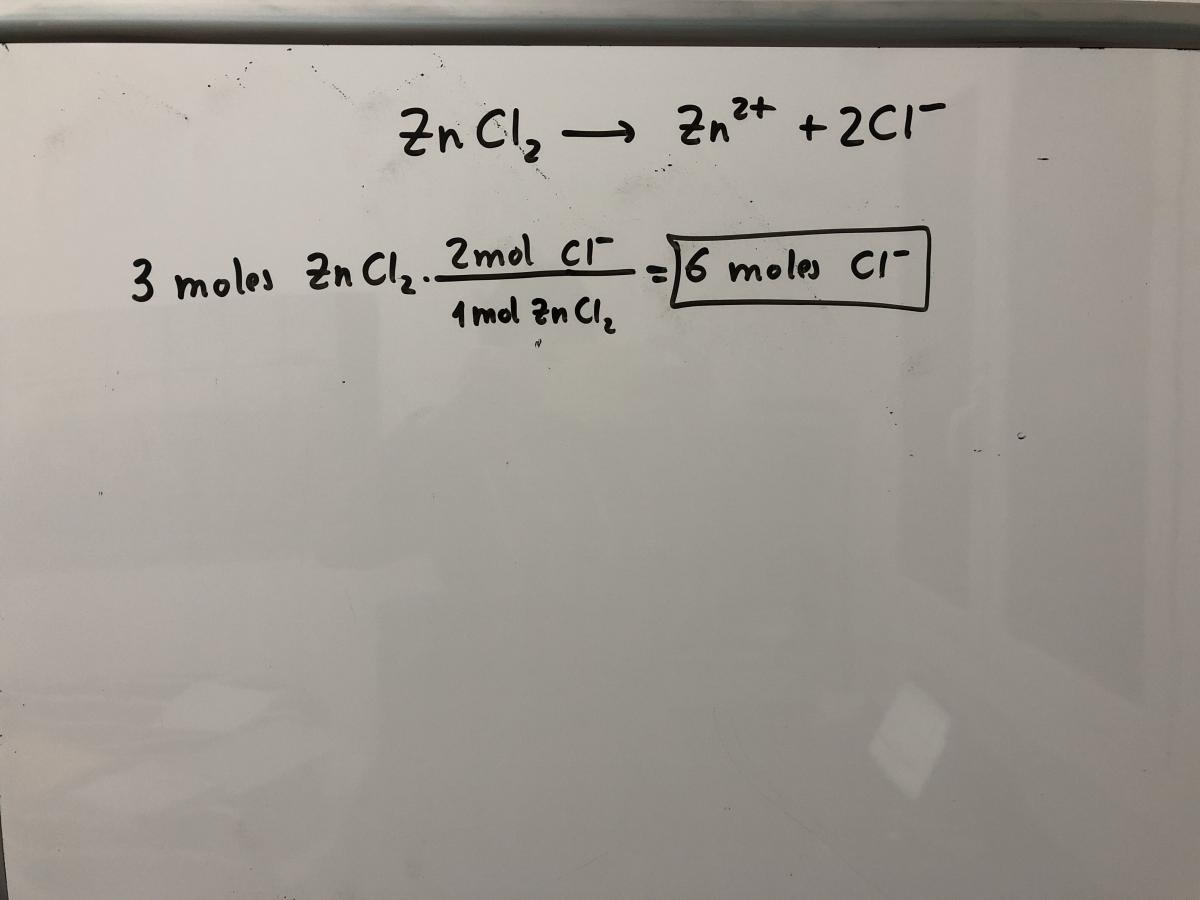 ZnCl₂ → Zn²⁺ + 2Cl⁻
3 moles ZnCl₂ · 2mol Cl⁻ / 1mol ZnCl₂ = 6 moles Cl⁻